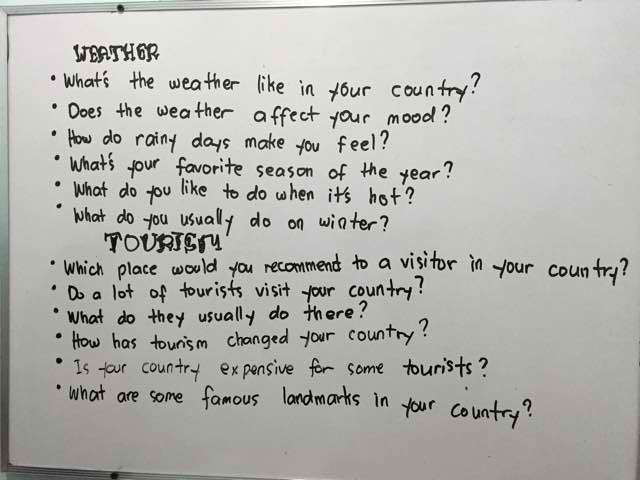 WEATHER
• What's the weather like in your country?
• Does the weather affect your mood?
• How do rainy days make you feel?
• What's your favorite season of the year?
• What do you like to do when it's hot?
• What do you usually do on winter?
TOURISM
• Which place would you recommend to a visitor in your country?
• Do a lot of tourists visit your country?
• What do they usually do there?
• How has tourism changed your country?
• Is your country expensive for some tourists?
• What are some famous landmarks in your country?